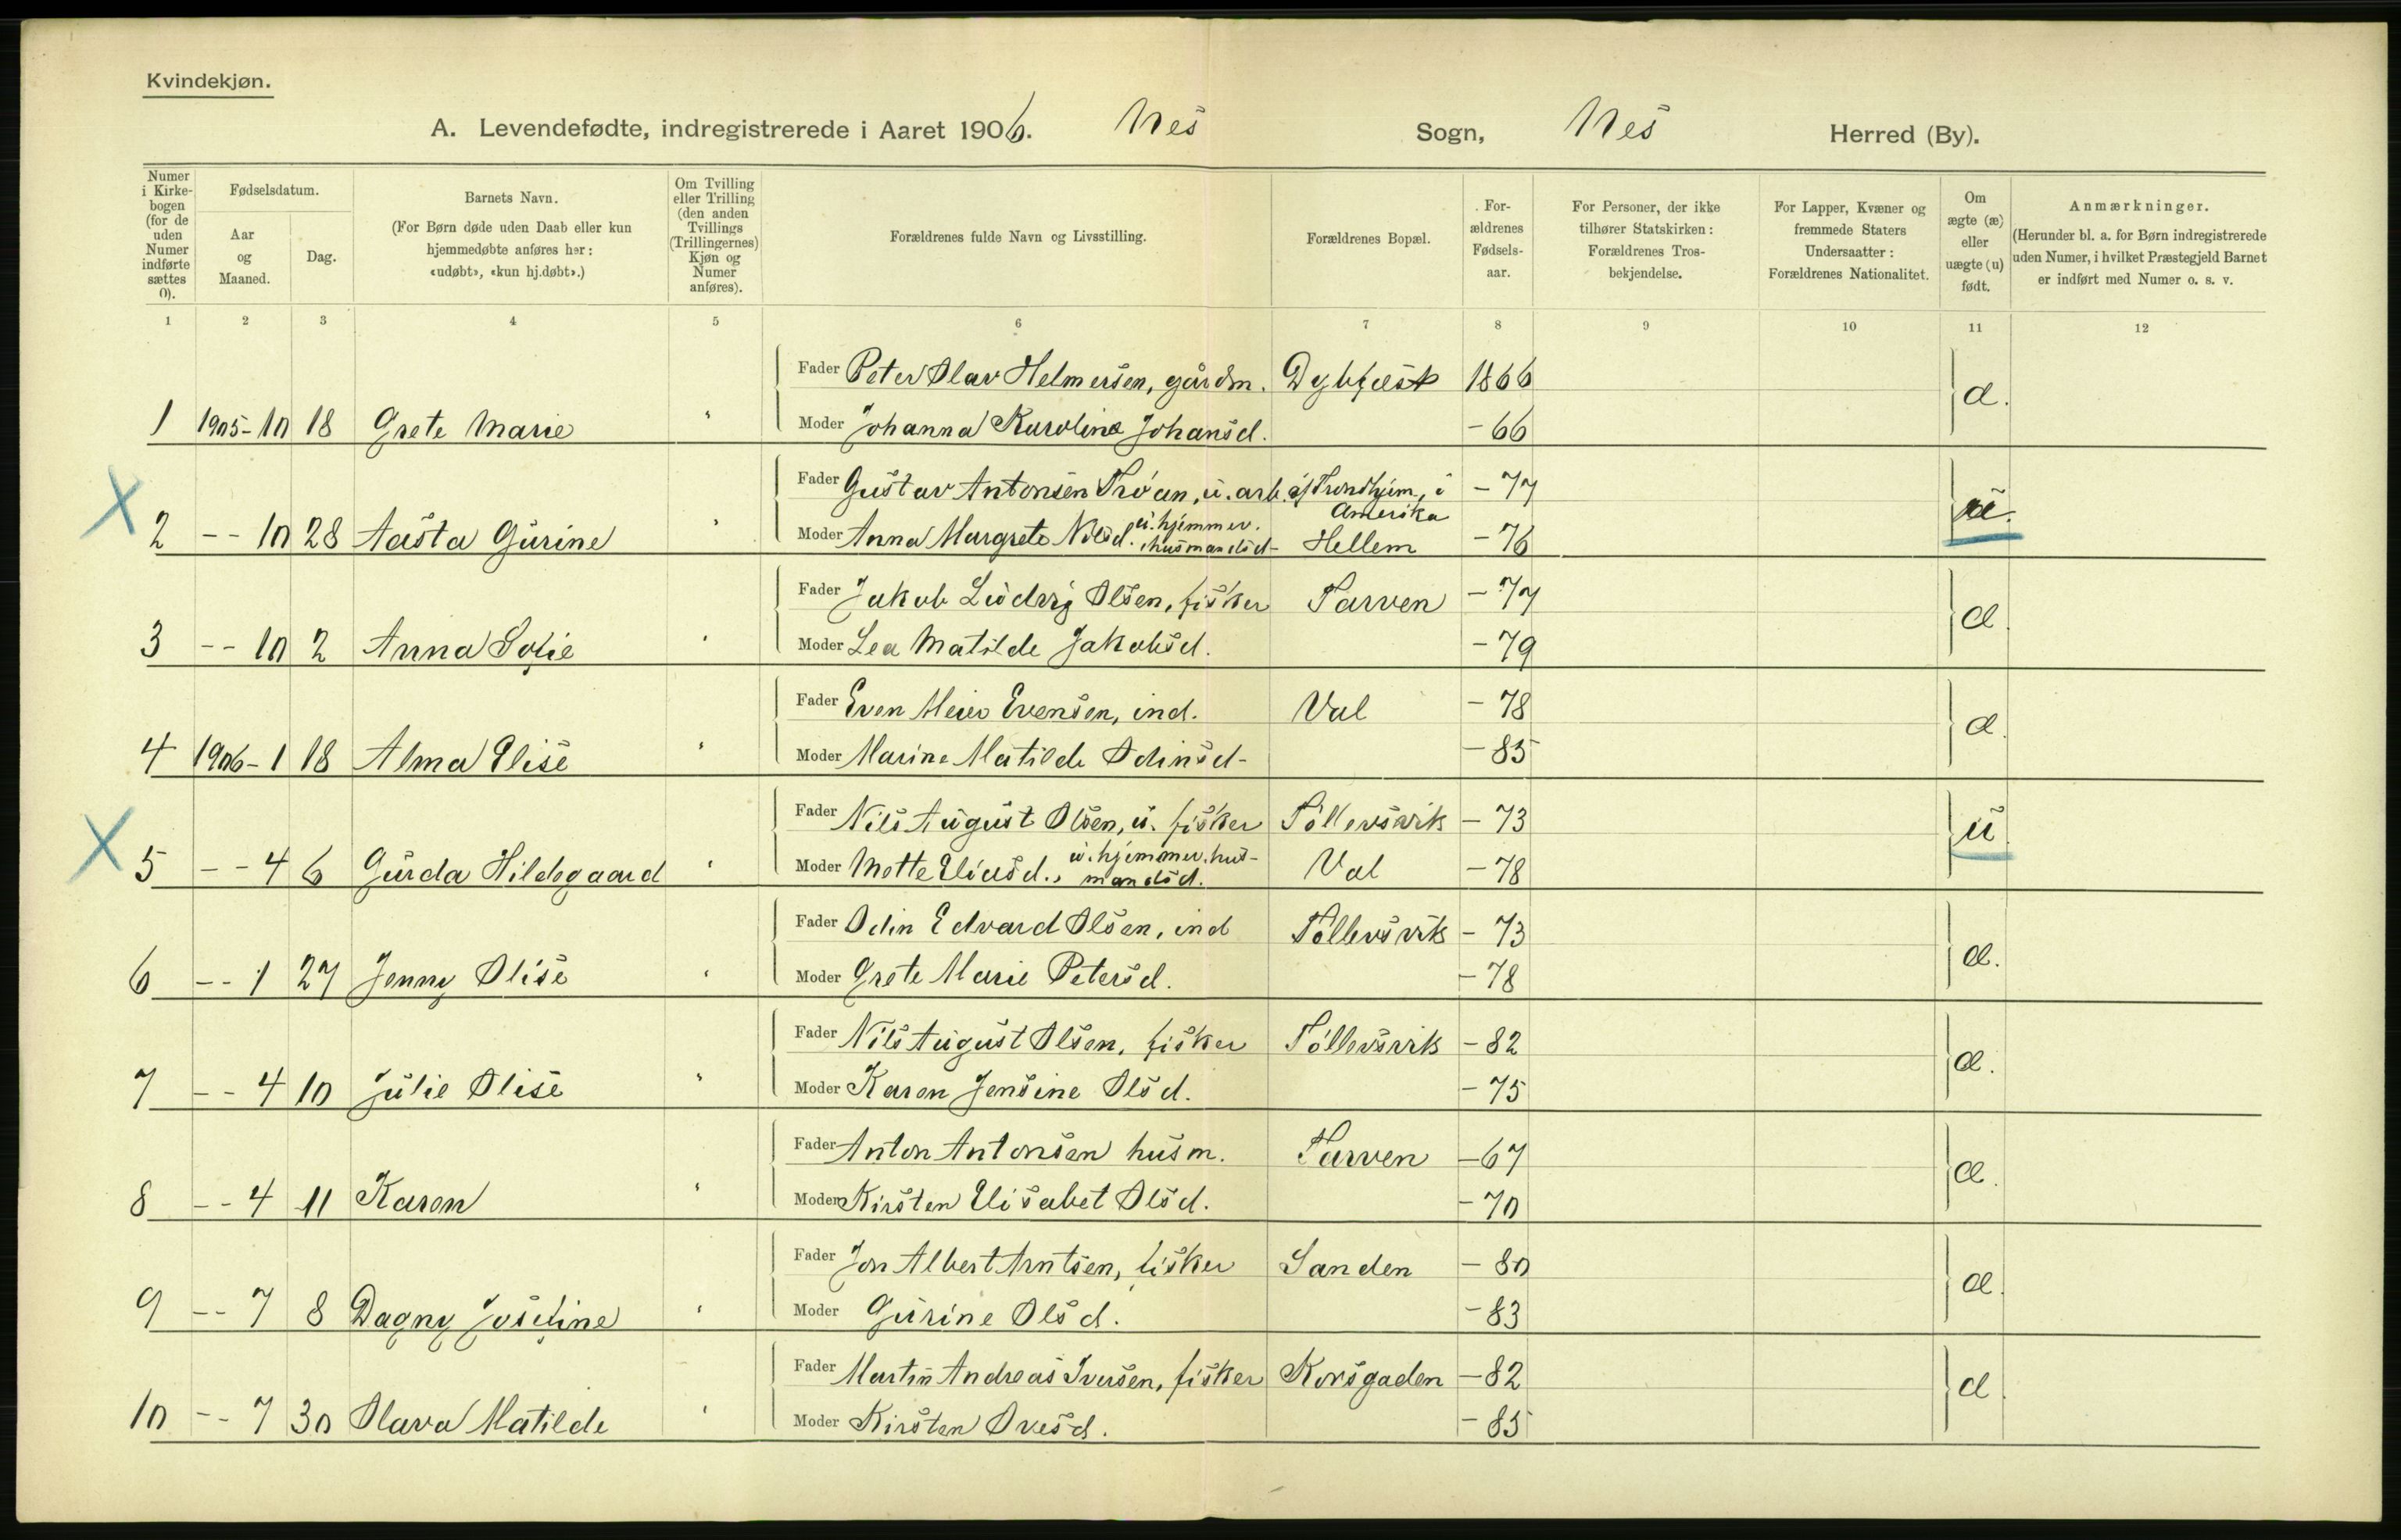 Kvindekjøn.
A. Levendefødte, indregistrerede i Aaret 1906. Nes Sogn, Nes Herred (By).
Numer i Kirke-bogen (for de uden Numer indførte sættes 0).
Fødselsdatum.
Aar og Maaned.
Dag.
Barnets Navn.
(For Børn døde uden Daab eller kun hjemmedøbte anføres her: «udøbt», «kun hj.døbt».)
Om Tvilling eller Trilling (den anden Tvillings (Trillingernes) Kjøn og Numer anføres).
Forældrenes fulde Navn og Livsstilling.
Forældrenes Bopæl.
For-ældrenes Fødsels-aar.
For Personer, der ikke tilhører Statskirken: Forældrenes Tros-bekjendelse.
For Lapper, Kvæner og fremmede Staters Undersaatter: Forældrenes Nationalitet.
Om ægte (æ) eller uægte (u) født.
Anmærkninger.
(Herunder bl. a. for Børn indregistrerede uden Numer, i hvilket Præstegjeld Barnet er indført med Numer o. s. v.
1 2 3 4 5 6 7 8 9 10 11 12
Fader Peter Olav Helmersen, gårdm. Dybfest 1866 æ.
1 1905-10 18 Grete Marie " Moder Johanna Karoline Johansd. -66
Fader Gustav Antonsen Tröan, u. arb. af Trondhjem, i Amerika -77 u.
X 2 -- 10 28 Aasta Gurine " Moder Anna Margrete Nilsd. u. hjemmev. husmandsd- Hellem -76
Fader Jakob Ludvig Olsen, fisker Tarven -77 æ.
3 -- 10 2 Anna Sofie " Moder Lea Matilde Jakobsd. -79
Fader Even Meier Evensen, ind. Val -78 æ.
4 1906-1 18 Alma Elise " Moder Marine Matilde Odinsd- -85
Fader Nils August Olsen, u. fisker Töllevsvik -73 u.
X 5 -- 4 6 Gurda Hildegaard " Moder Mette Eliasd., u. hjemmev. hus-mandsd. Val -78
Fader Odin Edvard Olsen, ind Töllevsvik -73 æ.
6 -- 1 27 Jenny Olise " Moder Grete Marie Petersd. -78
Fader Nils August Olsen, fisker Töllevsvik -82 æ.
7 -- 4 10 Julie Olise " Moder Karen Jensine Olsd. -75
Fader Anton Antonsen husm. Tarven -67 æ.
8 -- 4 11 Karen " Moder Kirsten Elisabet Olsd. -70
Fader Jon Albert Arntsen, fisker Sanden -80 æ.
9 -- 7 8 Dagny Josefine " Moder Gurine Olsd. -83
Fader Martin Andreas Iversen, fisker Korsgaden -82 æ.
10 -- 7 30 Olava Matilde " Moder Kirsten Ovesd. -85